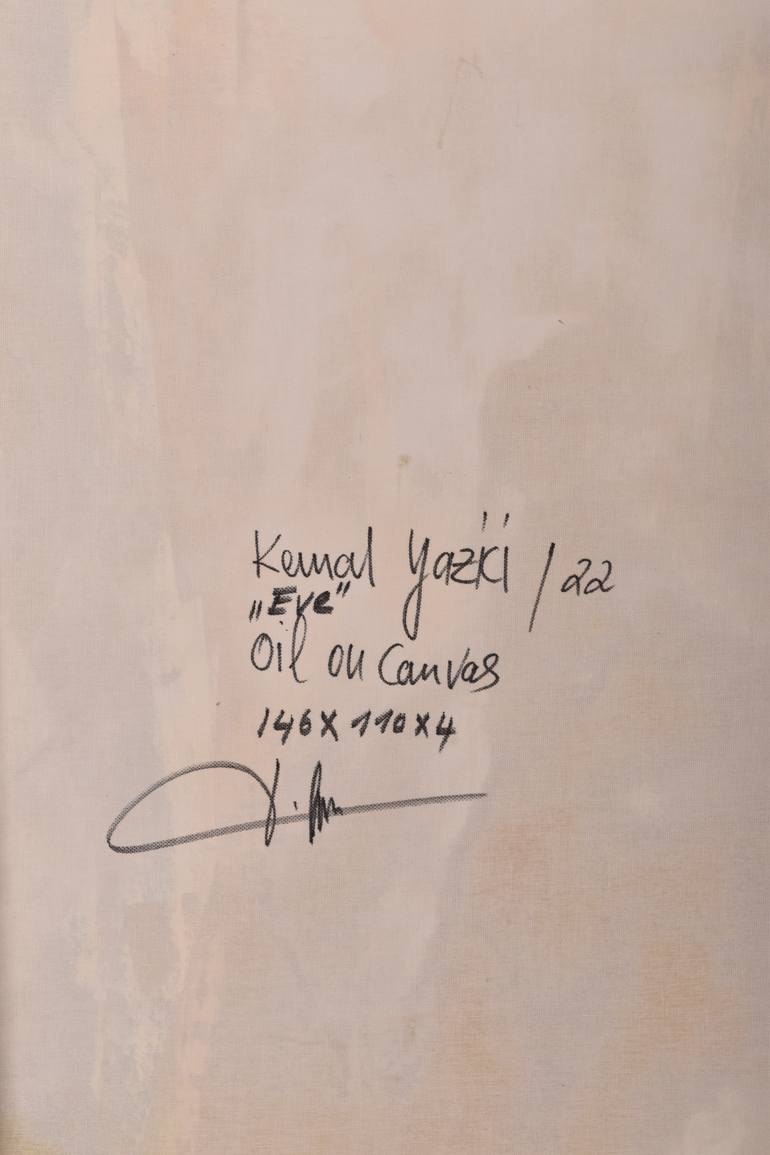 Kemal Yaziki /22
„Eve“
Oil on Canvas
146 x 110 x 4